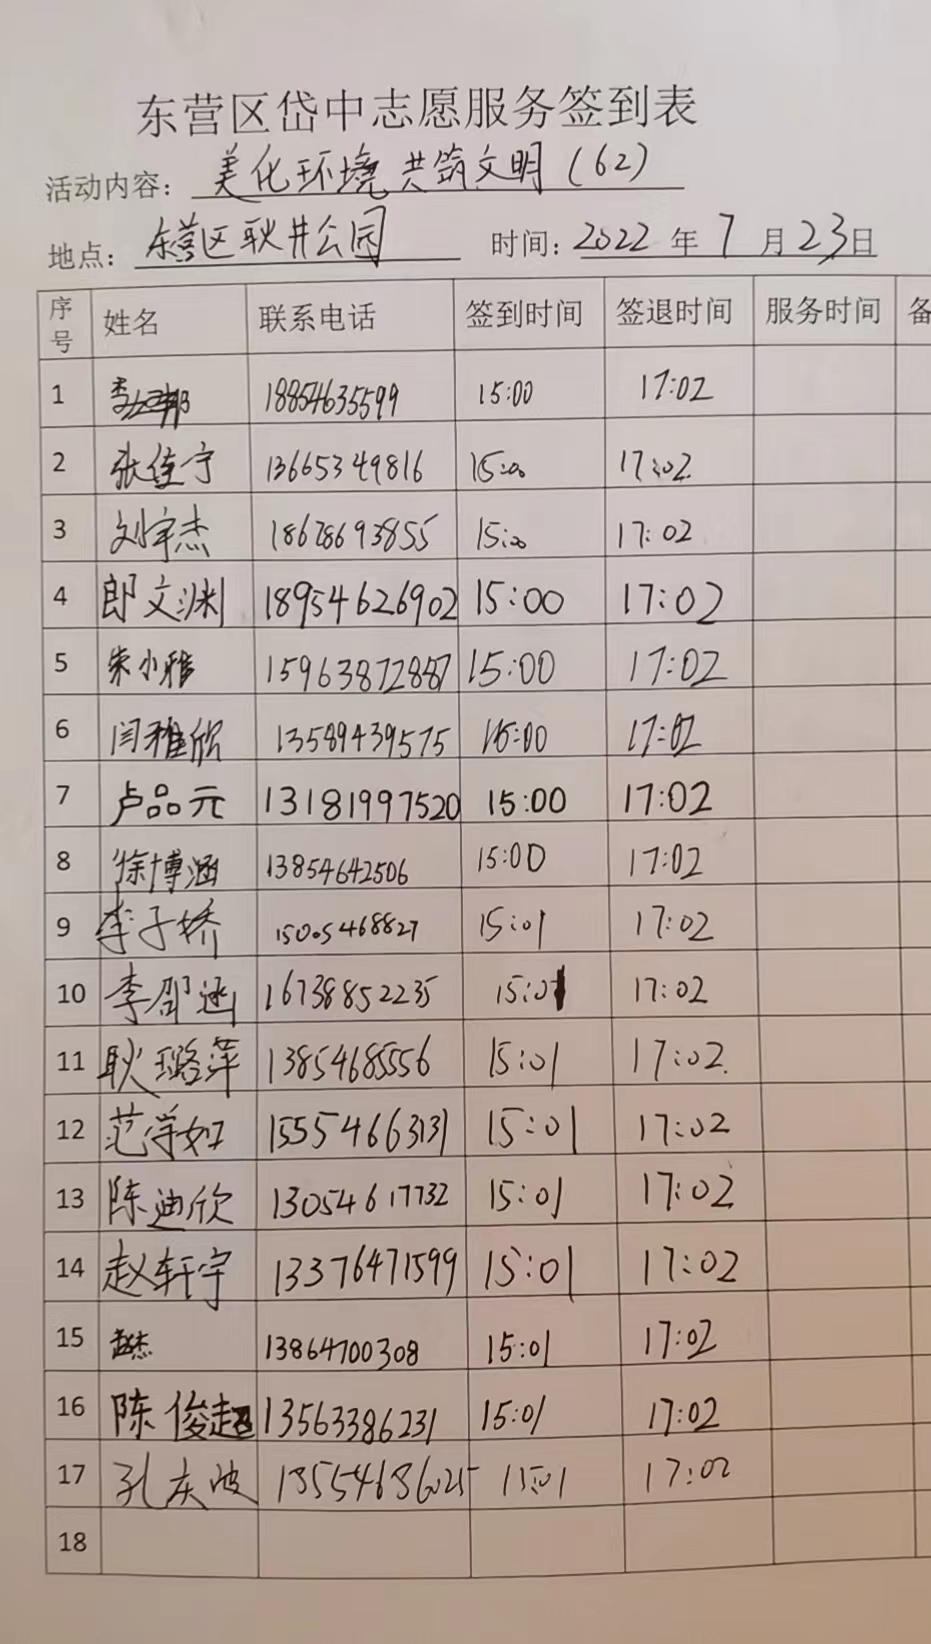 东营区岱中志愿服务签到表
活动内容：美化环境 共筑文明（62）
地点：东营区耿井公园 时间：2022 年 7 月 23 日
序号 姓名 联系电话 签到时间 签退时间 服务时间 备
1 18854635599 15:00 17:02
2 张佳宁 13665349816 15:00 17:02
3 刘宇杰 18678693855 15:00 17:02
4 郎文渊 18954626902 15:00 17:02
5 朱小雅 15963872887 15:00 17:02
6 闫雅欣 13589439575 15:00 17:02
7 卢品元 13181997520 15:00 17:02
8 徐博涵 13854642506 15:00 17:02
9 李子娇 15005468827 15:01 17:02
10 李邵涵 16738852235 15:01 17:02
11 耿璐萍 13854685556 15:01 17:02
12 范学如 15554663131 15:01 17:02
13 陈迪欣 13054617732 15:01 17:02
14 赵轩宇 13376471599 15:01 17:02
15 赵杰 13864700308 15:01 17:02
16 陈俊超 13563386231 15:01 17:02
17 孔庆波 18554686025 15:01 17:02
18